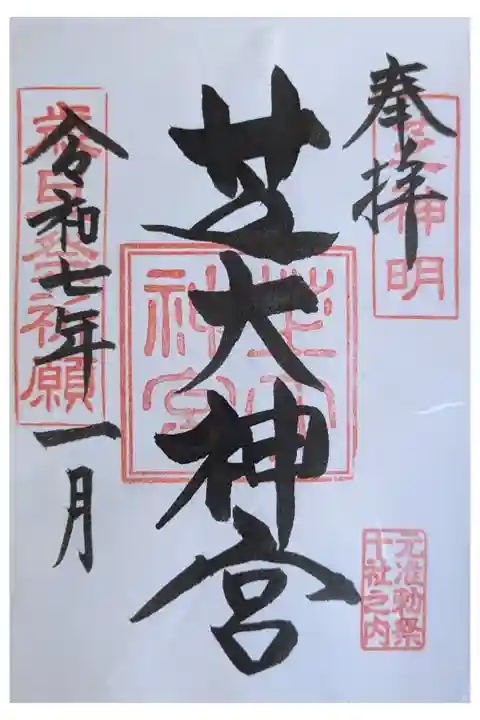 奉拝
神明
芝大神宮
芝大
神宮
令和七年一月
祈願
元准勅祭
十社之内